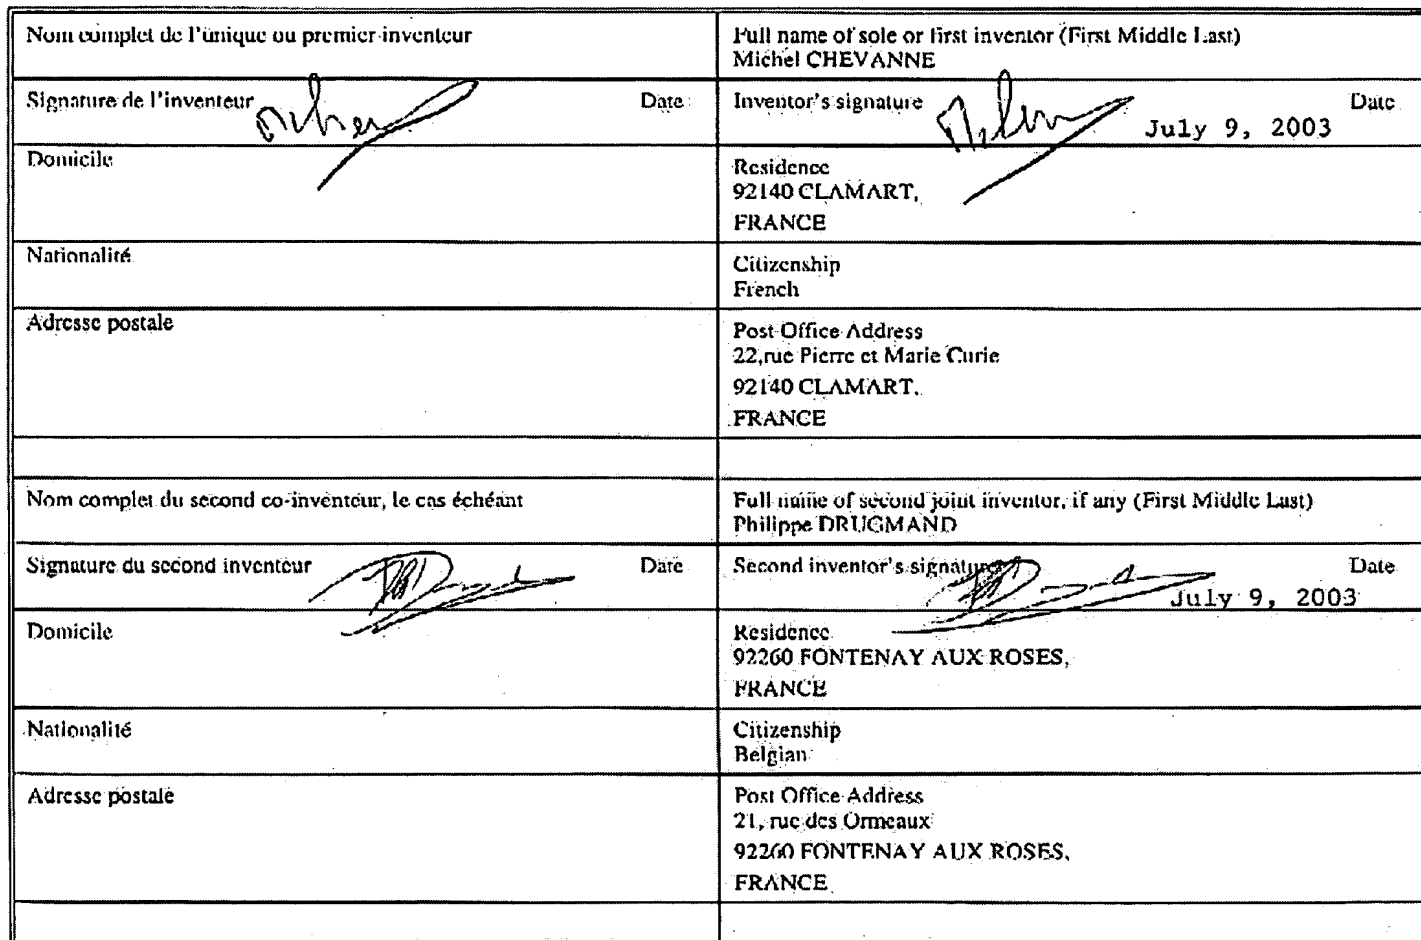 Nom complet de l'unique ou premier inventeur
Full name of sole or first inventor (First Middle Last)
Michel CHEVANNE
Signature de l'inventeur Date
Inventor's signature Date
July 9, 2003
Domicile
Residence
92140 CLAMART,
FRANCE
Nationalité
Citizenship
French
Adresse postale
Post Office Address
22,rue Pierre et Marie Curie
92140 CLAMART,
FRANCE
Nom complet du second co-inventeur, le cas échéant
Full name of second joint inventor, if any (First Middle Last)
Philippe DRUGMAND
Signature du second inventeur Date
Second inventor's signature Date
July 9, 2003
Domicile
Residence
92260 FONTENAY AUX ROSES,
FRANCE
Nationalité
Citizenship
Belgian
Adresse postale
Post Office Address
21, rue des Ormeaux
92260 FONTENAY AUX ROSES,
FRANCE